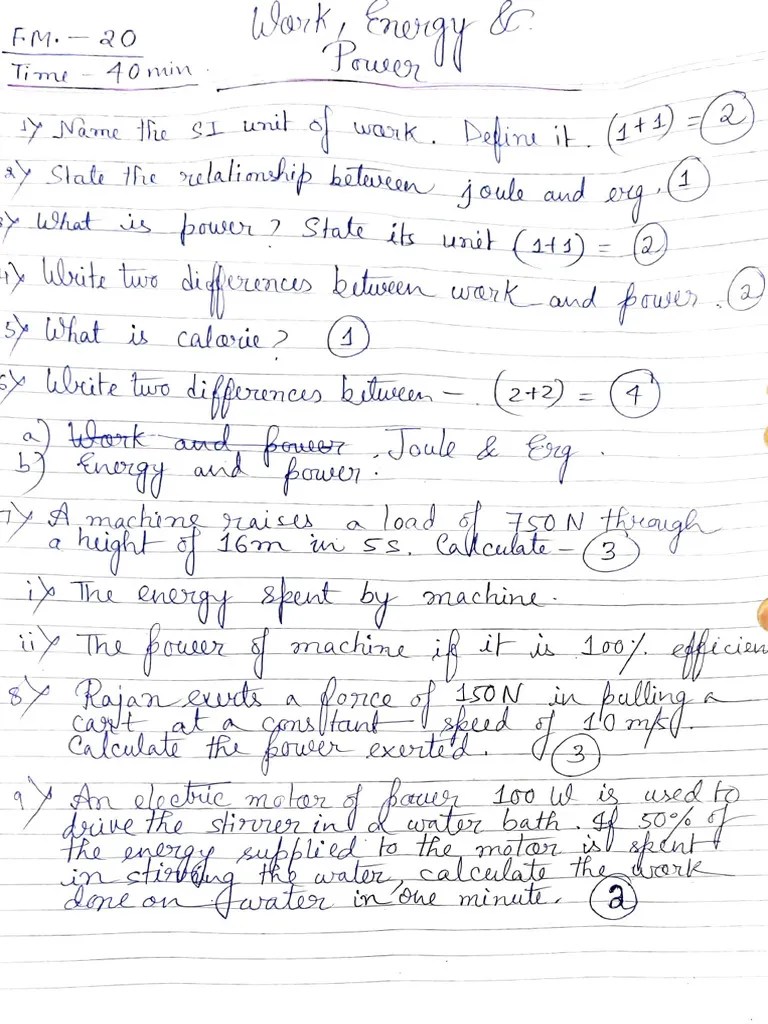 Work, Energy &
Power
F.M. - 20
Time - 40min.
1) Name the SI unit of work. Define it. (1+1) = 2
2) State the relationship between joule and erg. 1
3) What is power? State its unit (1+1) = 2
4) Write two differences between work and power. 2
5) What is calorie? 1
6) Write two differences between - (2+2) = 4
a) Work and power. Joule & Erg.
b) Energy and power.
7) A machine raises a load of 750N through
a height of 16m in 5s. Calculate - 3
i) The energy spent by machine.
ii) The power of machine if it is 100% efficien
8) Rajan exerts a force of 150N in pulling a
cart at a constant speed of 10 m/s.
Calculate the power exerted. 3
9) An electric motor of power 100 W is used to
drive the stirrer in a water bath. If 50% of
the energy supplied to the motor is spent
in stirring the water, calculate the work
done on water in one minute. 2